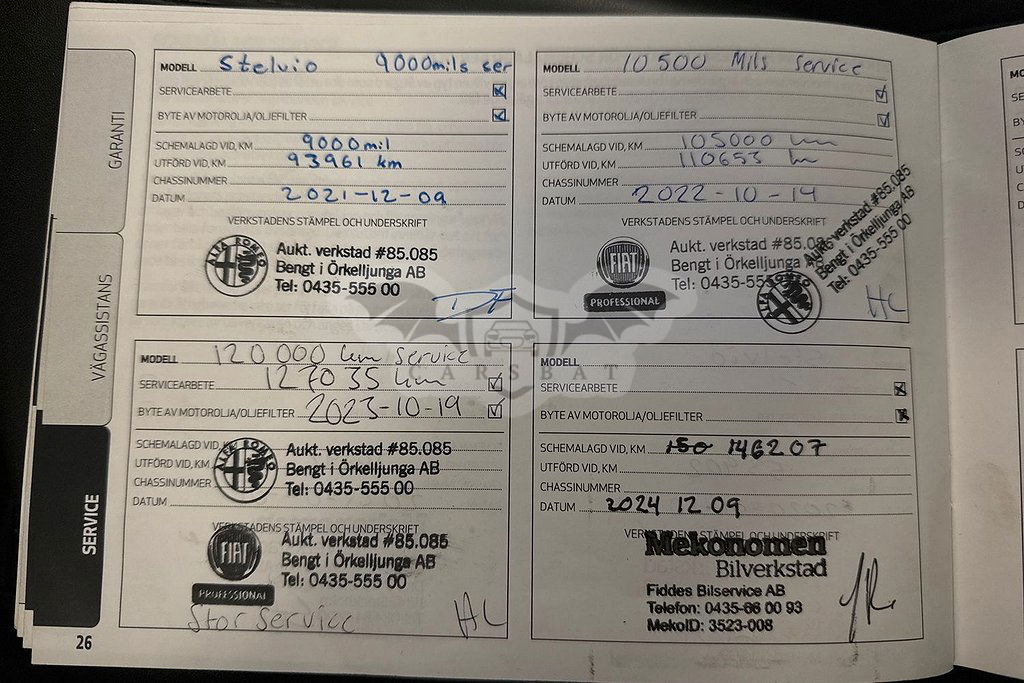 GARANTI
VÄGASSISTANS
SERVICE
MODELL Stelvio 9000mils ser
SERVICEARBETE
BYTE AV MOTOROLJA/OLJEFILTER
SCHEMALAGD VID, KM 9000mil
UTFÖRD VID, KM 93961 km
CHASSINUMMER
DATUM 2021-12-09
VERKSTADENS STÄMPEL OCH UNDERSKRIFT
ALFA ROMEO
Aukt. verkstad #85.085
Bengt i Örkelljunga AB
Tel: 0435-555 00
MODELL 10500 Mils Service
SERVICEARBETE
BYTE AV MOTOROLJA/OLJEFILTER
SCHEMALAGD VID, KM 105000 km
UTFÖRD VID, KM 110653 km
CHASSINUMMER
DATUM 2022-10-14
VERKSTADENS STÄMPEL OCH UNDERSKRIFT
FIAT
PROFESSIONAL
Aukt. verkstad #85.085
Bengt i Örkelljunga
Tel: 0435-555 00
ALFA ROMEO
Aukt. verkstad #85.085
Bengt i Örkelljunga AB
Tel: 0435-555 00
HL
CARSBAT
MODELL 120 000 km Service
SERVICEARBETE 127035 km
BYTE AV MOTOROLJA/OLJEFILTER 2023-10-19
SCHEMALAGD VID, KM
UTFÖRD VID, KM
CHASSINUMMER
DATUM
ALFA ROMEO
Aukt. verkstad #85.085
Bengt i Örkelljunga AB
Tel: 0435-555 00
VERKSTADENS STÄMPEL OCH UNDERSKRIFT
FIAT
PROFESSIONAL
Aukt. verkstad #85.085
Bengt i Örkelljunga AB
Tel: 0435-555 00
Stor Service HL
MODELL
SERVICEARBETE
BYTE AV MOTOROLJA/OLJEFILTER
SCHEMALAGD VID, KM 150 146207
UTFÖRD VID, KM
CHASSINUMMER
DATUM 2024 12 09
VERKSTADENS STÄMPEL OCH UNDERSKRIFT
Mekonomen
Bilverkstad
Fiddes Bilservice AB
Telefon: 0435-66 00 93
MekoID: 3523-008
26